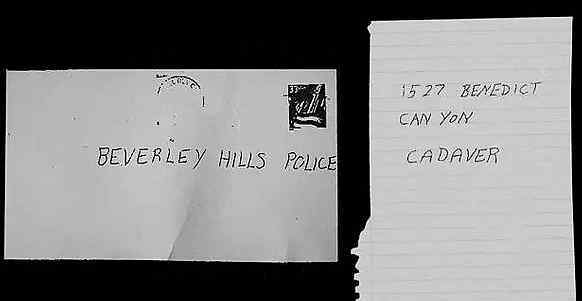 BEVERLEY HILLS POLICE
1527 BENEDICT
CANYON
CADAVER